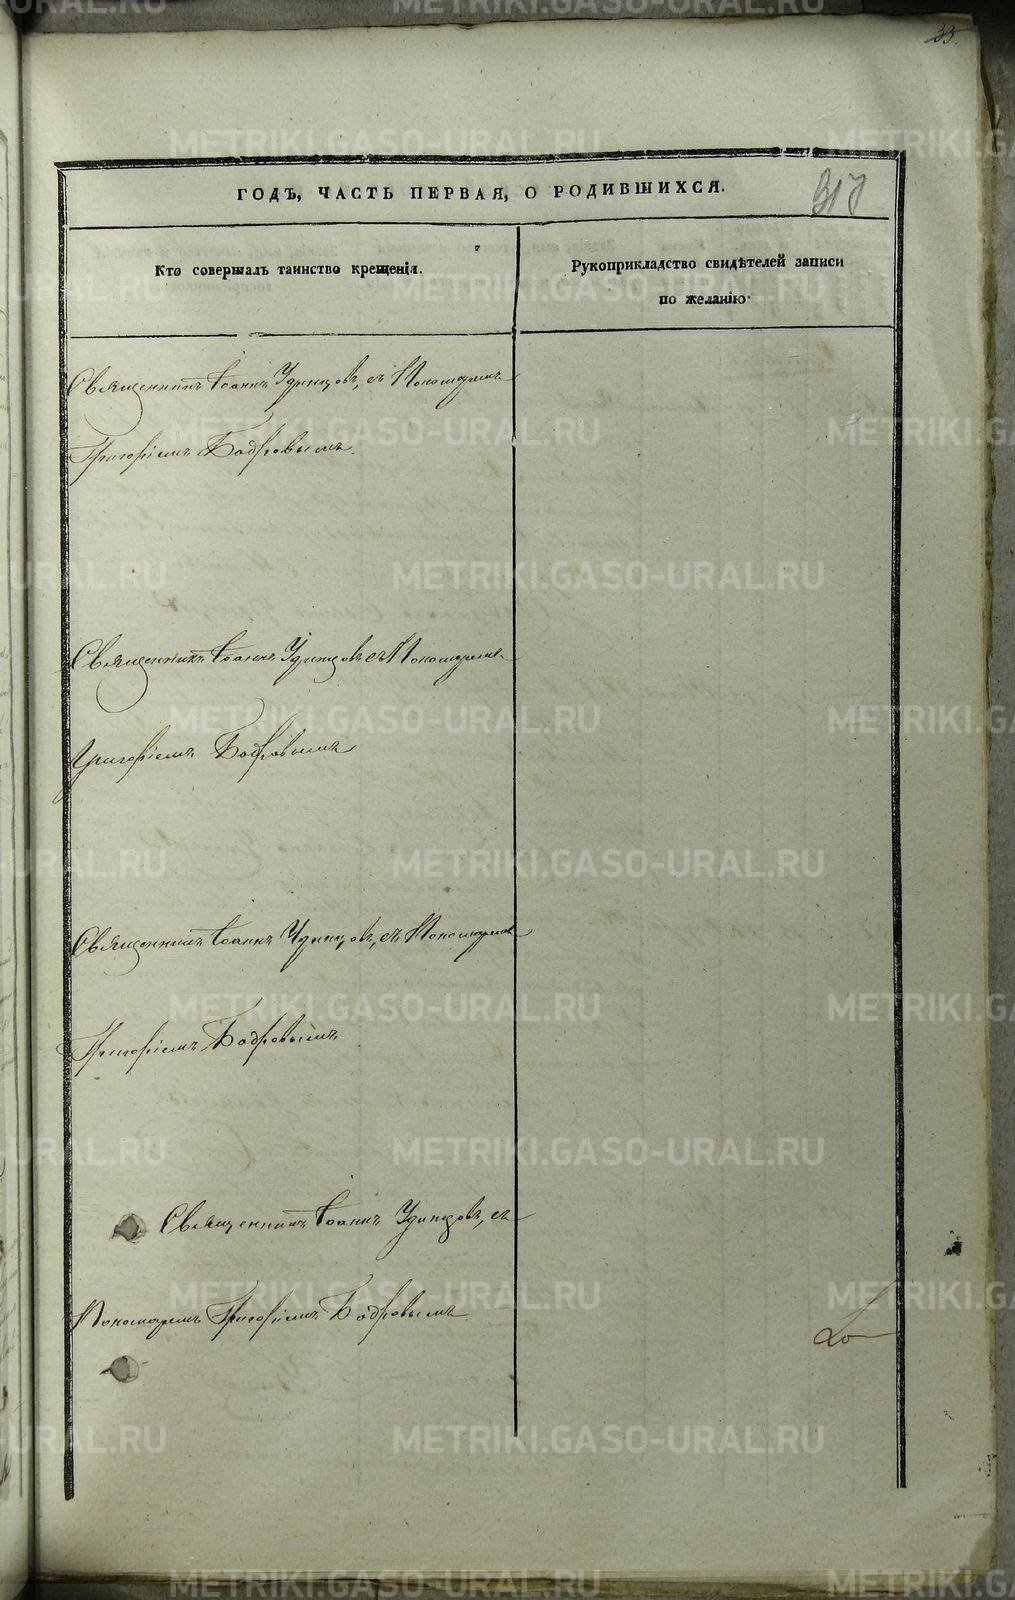 33.
ГОДЪ, ЧАСТЬ ПЕРВАЯ, О РОДИВШИХСЯ.
317
Кто совершалъ таинство крещенія.
Рукоприкладство свидѣтелей записи
по желанію.
Священникъ Іоаннъ Удинцовъ, съ Пономаремъ
Григоріемъ Бодровымъ.
Священникъ Іоаннъ Удинцовъ съ Пономаремъ
Григоріемъ Бодровымъ
Священникъ Іоаннъ Удинцовъ, съ Пономаремъ
Григоріемъ Бодровымъ
Священникъ Іоаннъ Удинцовъ, съ
Пономаремъ Григоріемъ Бодровымъ
METRIKI.GASO-URAL.RU